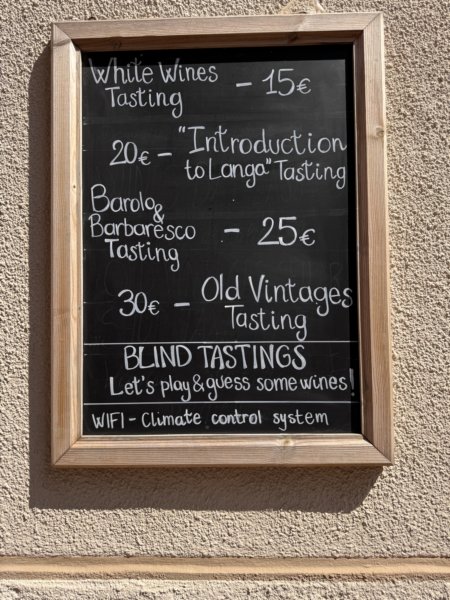 White Wines
Tasting - 15€
"Introduction
20€ - to Langa" Tasting
Barolo
& Barbaresco - 25€
Tasting
30€ - Old Vintages
Tasting
BLIND TASTINGS
Let's play & guess some wines!
WIFI - Climate control system